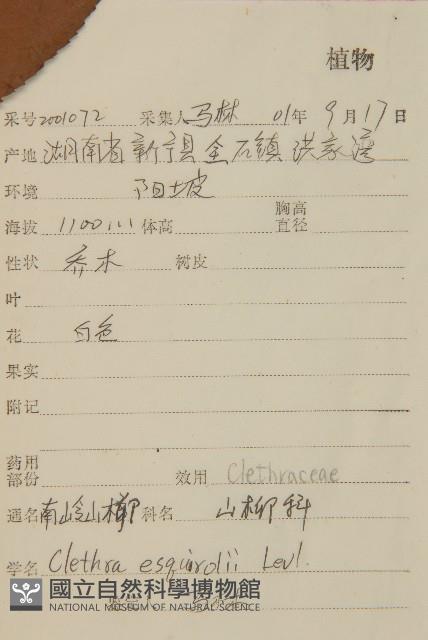 植物
采号 2001072 采集人 马林 01年 9月17日
产地 湖南省新宁县金石镇洪家湾
环境 阳坡
胸高
海拔 1100m 体高 直径
性状 乔木 树皮
叶
花 白色
果实
附记
药用
部份 效用 Clethraceae
通名 南岭山柳 科名 山柳科
学名 Clethra esquirolii Levl.
國立自然科學博物館
NATIONAL MUSEUM OF NATURAL SCIENCE